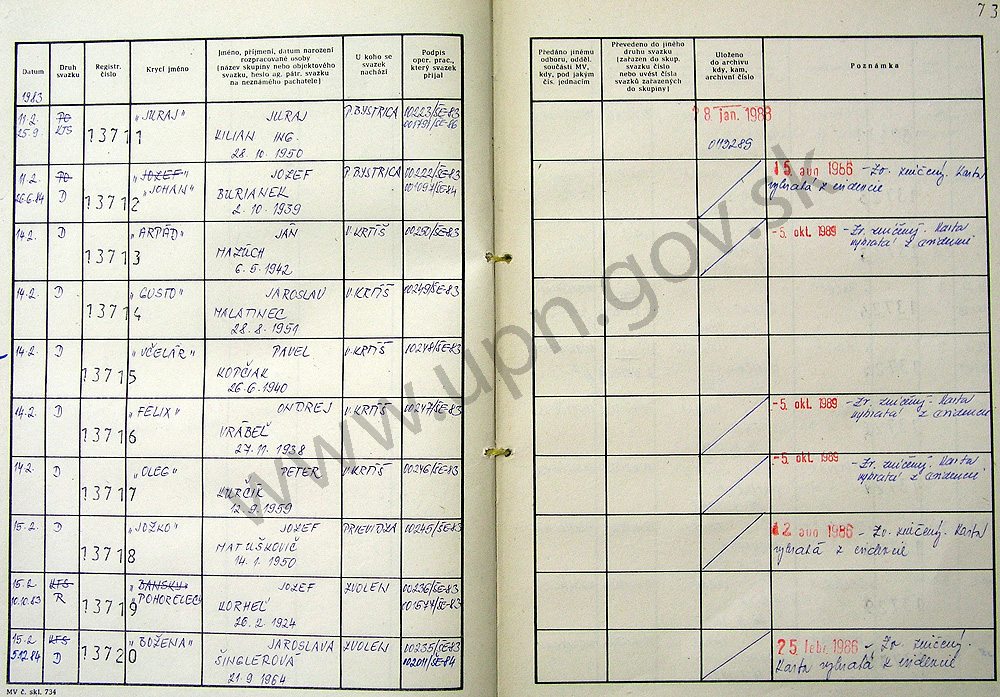 73
Datum
Druh svazku
Registr. číslo
Krycí jméno
Jméno, příjmení, datum narození
rozpracované osoby
(název skupiny nebo objektového
svazku, heslo ag. pátr. svazku
na neznámého pachatele)
U koho se
svazek
nachází
Podpis
oper. prac.,
který svazek
přijal
Předáno jinému
odboru, odděl.
součásti MV,
kdy, pod jakým
čís. jednacím
Převedeno do jiného
druhu svazku
(zařazen do skup.
svazku číslo
nebo uvést čísla
svazků zařazených
do skupiny)
Uloženo
do archivu
kdy, kam,
archivní číslo
Poznámka
1983
11.2. PO 13711 „JURAJ" JURAJ P. BYSTRICA 00223/ŠE-83 28. jan. 1988
25.9 KTS KILIAN ING. 00179/ŠE-86
28. 10. 1950
11.2. PO 13712 „JOZEF" JOZEF P. BYSTRICA 00222/ŠE-83 15. aug 1986 - Zv. zničený. Karta
26.6.84 D „JOHAN" BURIANEK vybratá z evidencie
2. 10. 1939
14.2. D 13713 „ARPÁD" JÁN V. KRTÍŠ 00250/ŠE-83 -5. okt. 1989 - Zv. zničený. Karta
MAZÚCH vybratá z evidencie
6. 5. 1942
14.2. D 13714 „GUSTO" JAROSLAV V. KRTÍŠ 00249/ŠE-83
MALATINEC
28. 8. 1951
14.2. D 13715 „VČELÁR" PAVEL V. KRTÍŠ 00248/ŠE-83
KOPČIAK
26. 6. 1940
14.2. D 13716 „FELIX" ONDREJ V. KRTÍŠ 00247/ŠE-83 -5. okt. 1989 - Zv. zničený. Karta
VRÁBEĽ vybratá z evidencie
27. 11. 1938
14.2. D 13717 „OLEG" PETER V. KRTÍŠ 00246/ŠE-83 -5. okt. 1989 - Zv. zničený. Karta
KURČÍK vybratá z evidencie
12. 9. 1959
15.2. D 13718 „JOŽKO" JOZEF PRIEVIDZA 00245/ŠE-83 12. aug 1986 - Zv. zničený. Karta
MATUŠKOVIČ vybratá z evidencie
14. 1. 1950
15.2. KTS 13719 „BANSKÝ" JOZEF ZVOLEN 00236/ŠE-83
10.10.83 R „POHORELEC" KORHEĽ 001574/ŠE-83
26. 2. 1924
15.2. KTS 13720 „BOŽENA" JAROSLAVA ZVOLEN 00235/ŠE-83 25. febr. 1986 - Zv. zničený.
5.12.84 D ŠINGLEROVÁ 002011/ŠE-84 Karta vybratá z evidencie
21. 9. 1964
MV č. skl. 734
www.upn.gov.sk